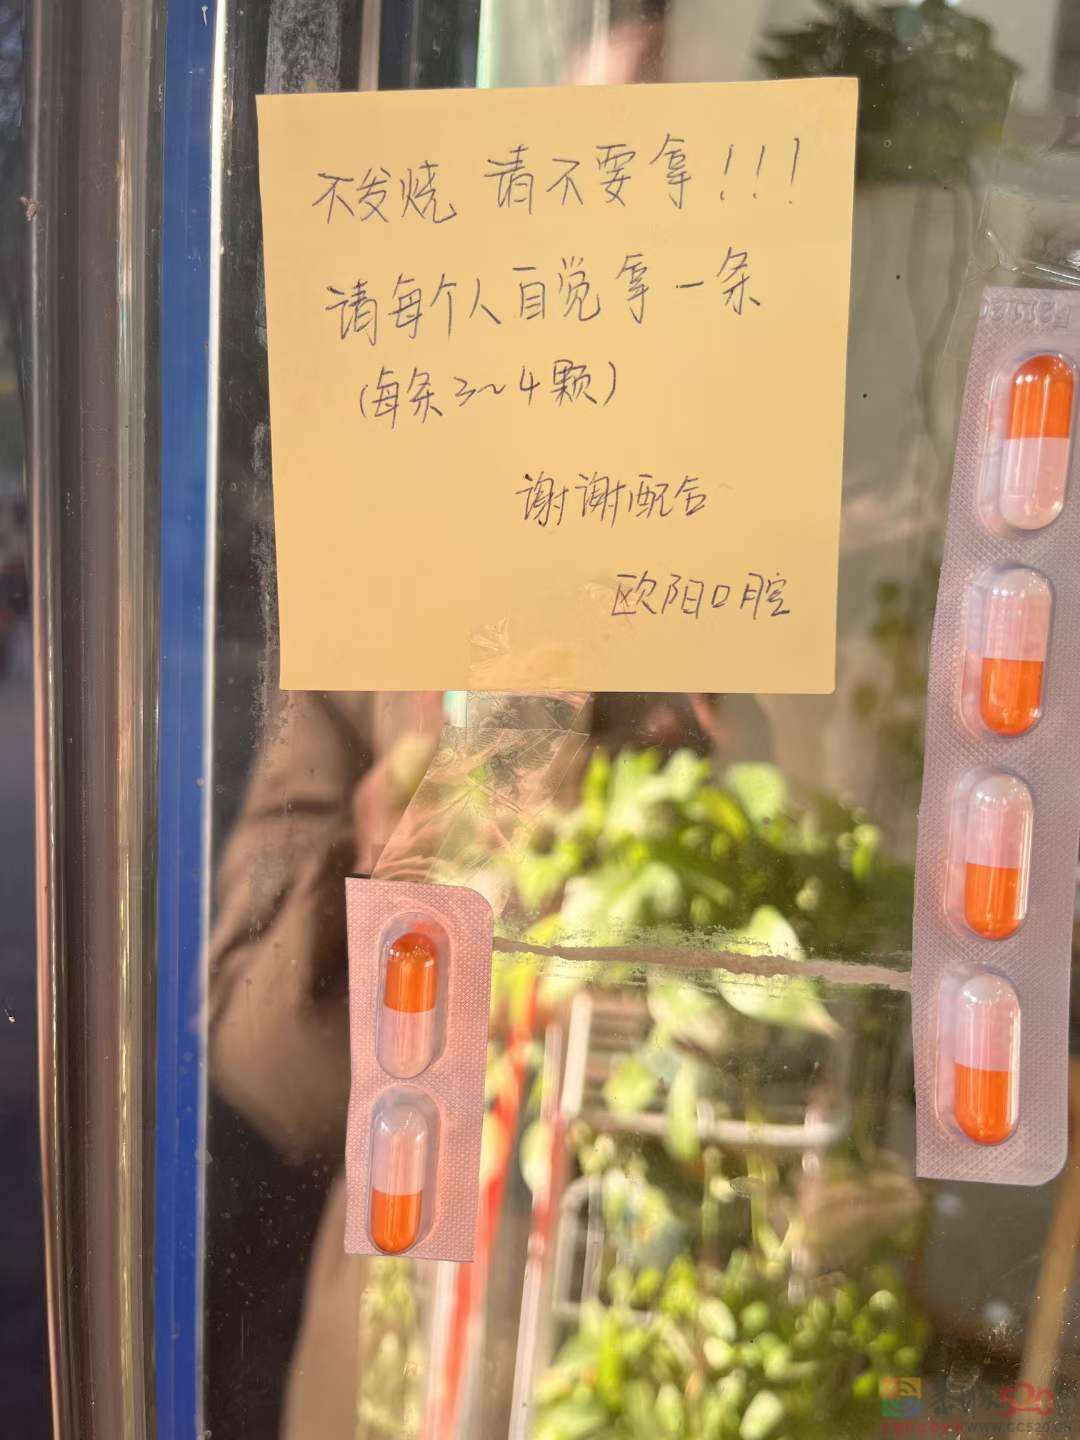 不发烧 请不要拿!!!
请每个人自觉拿一条
(每条3~4颗)
谢谢配合
欧阳口腔
恭城520
WWW.GC520.CN